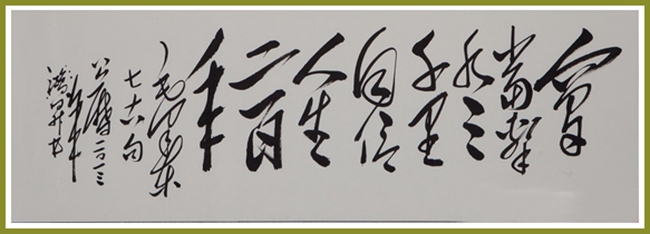 會
當擊
水三
千里
自信
人生
二百
年
毛澤東
公曆二〇一三